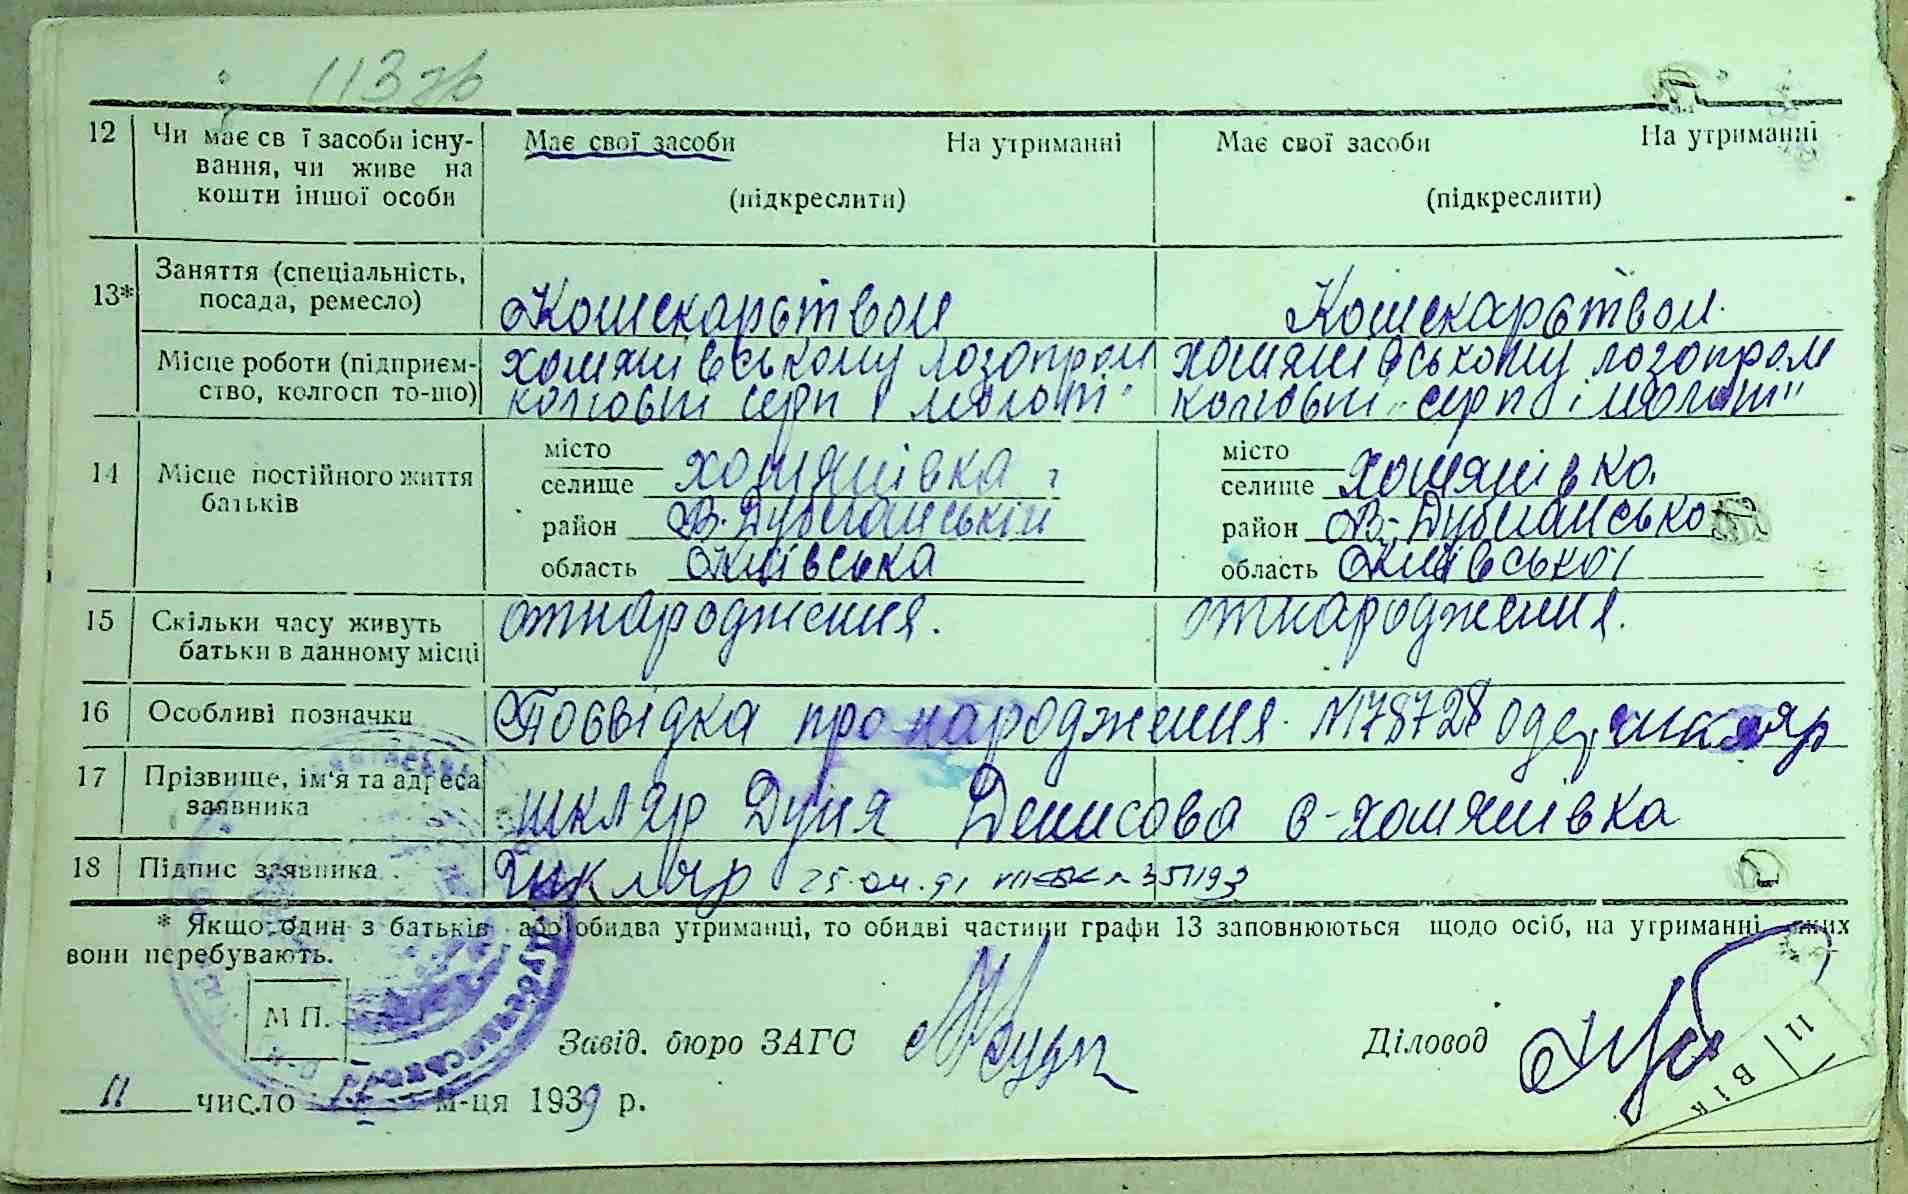 113 зв
12 Чи має св ї засоби існу- Має свої засоби На утриманні Має свої засоби На утриманні
вання, чи живе на (підкреслити) (підкреслити)
кошти іншої особи
13* Заняття (спеціальність,
посада, ремесло) Кошекарством Кошекарством.
Місце роботи (підприєм- хотянівському лозопром хотянівському лозопром
ство, колгосп то-що) серп і молот" "серп і молот"
14 Місце постійного життя
батьків
місто
селище хотянівка місто
селище хотянівка
район В. Дубечанській район В.-Дубечансько
область Київська область Київської
15 Скільки часу живуть
батьки в данному місці отнародження. отнародження.
16 Особливі позначки Посвідка про народження. №178728 одер. шкляр
17 Прізвище, ім'я та адреса
заявника шкляр Дуня Денисова с-хотянівка
18 Підпис заявника Шкляр 25.04.91 № 351193
* Якщо один з батьків або обидва утриманці, то обидві частини графи 13 заповнюються щодо осіб, на утриманні яких
вони перебувають.
М П.
Завід. бюро ЗАГС Діловод
11 число м-ця 1939 р.
11 В1к